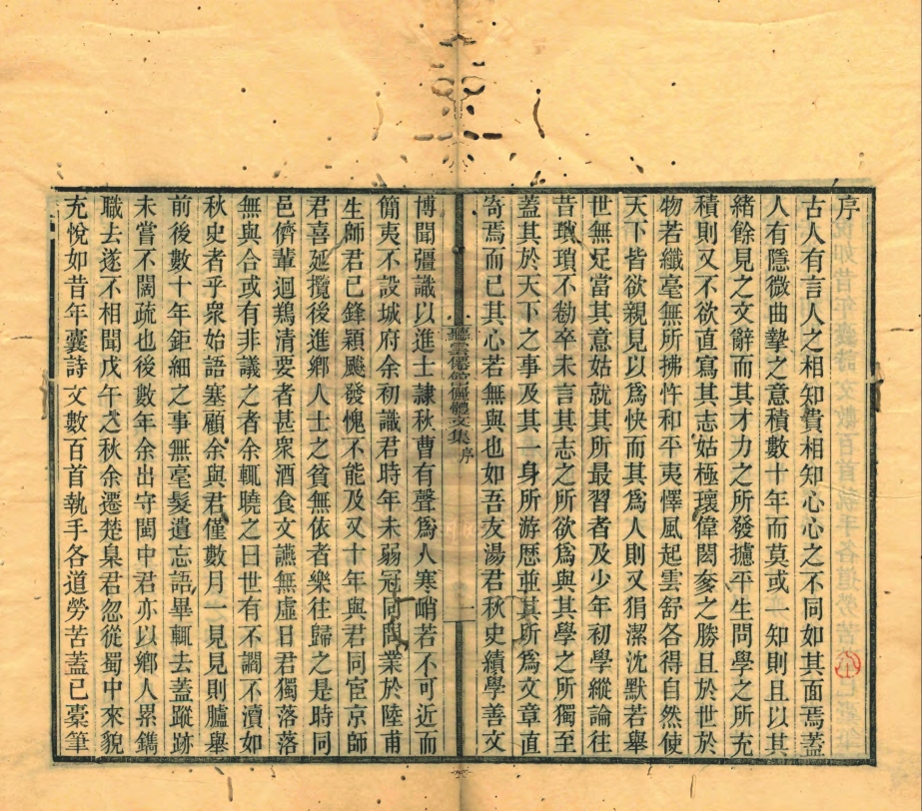 序
古人有言人之相知貴相知心心之不同如其面焉蓋
人有隱微曲摯之意積數十年而莫或一知則且以其
緒餘見之文辭而其才力之所發攄平生問學之所充
積則又不欲直寫其志姑極瓌偉閎奓之勝且於世於
物若纖毫無所拂忤和平夷懌風起雲舒各得自然使
天下皆欲親見以爲快而其爲人則又狷潔沈默若舉
世無足當其意姑就其所最習者及少年初學縱論往
昔瑣瑣不勌卒未言其志之所欲爲與其學之所獨至
蓋其於天下之事及其一身所游歴並其所爲文章直
寄焉而已其心若無與也如吾友湯君秋史績學善文
聽雲僊館儷體文集 序
一
博聞彊識以進士隸秋曹有聲爲人寒峭若不可近而
簡夷不設城府余初識君時年未弱冠同問業於陸甫
生師君已鋒穎飈發愧不能及又十年與君同宦京師
君喜延攬後進鄉人士之貧無依者樂往歸之是時同
邑儕輩迴鵷清要者甚衆酒食文讌無虛日君獨落落
無與合或有非議之者余輒曉之曰世有不譋不瀆如
秋史者乎衆始語塞顧余與君僅數月一見見則臚舉
前後數十年鉅細之事無毫髮遺忘語畢輒去蓋蹤跡
未嘗不闊疏也後數年余出守閩中君亦以鄉人累鐫
職去遂不相聞戊午之秋余遷楚臬君忽從蜀中來貌
充悅如昔年囊詩文數百首執手各道勞苦蓋已槖筆